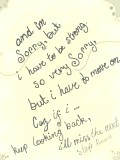 and im
Sorry, but
i have to be strong
so very Sorry
but i have to move on
Coz if i...
Keep looking back,
i'll miss the next